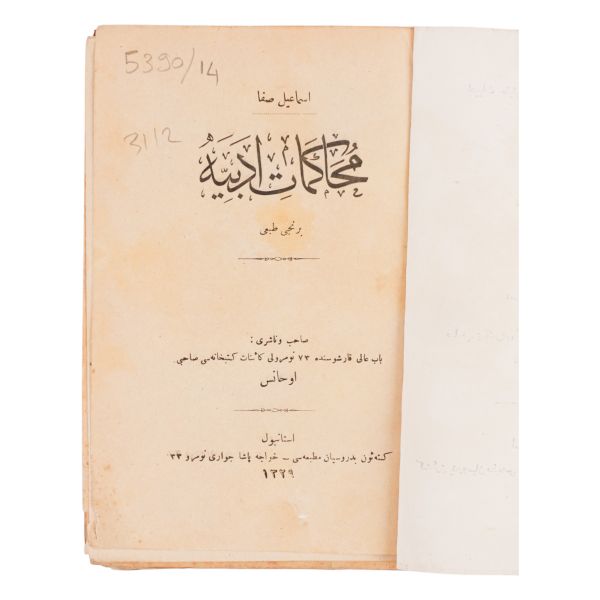 5390/14
اسماعیل صفا
3112
مُحَاكَمَاتِ اَدَبِيَّه
برنجی طبعی
صاحب و ناشری :
باب عالی قارشوسنده ٧٣ نومرولی کائنات کتبخانه‌سی صاحبی
اوحانس
استانبول
بدروسیان مطبعه‌سی — خواجه پاشا جواری نومرو ٣٣
١٣٢٩